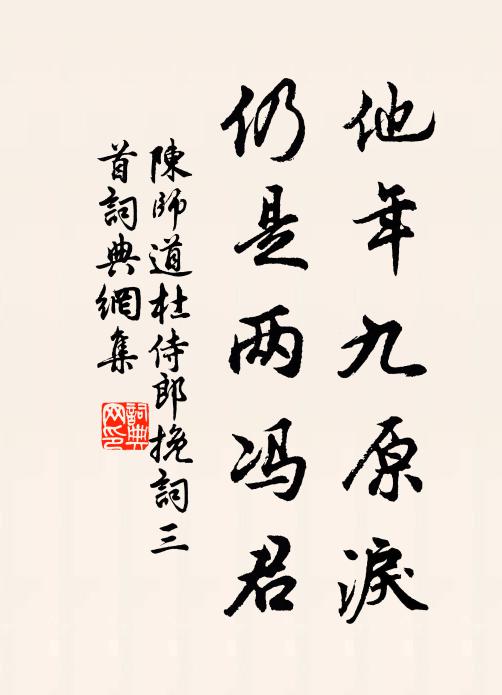 他年九原淚
仍是两冯君
陳師道杜侍郎挽詞三
首詞典網集
詞典
网印